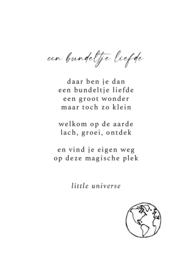 een bundeltje liefde
daar ben je dan
een bundeltje liefde
een groot wonder
maar toch zo klein
welkom op de aarde
lach, groei, ontdek
en vind je eigen weg
op deze magische plek
little universe